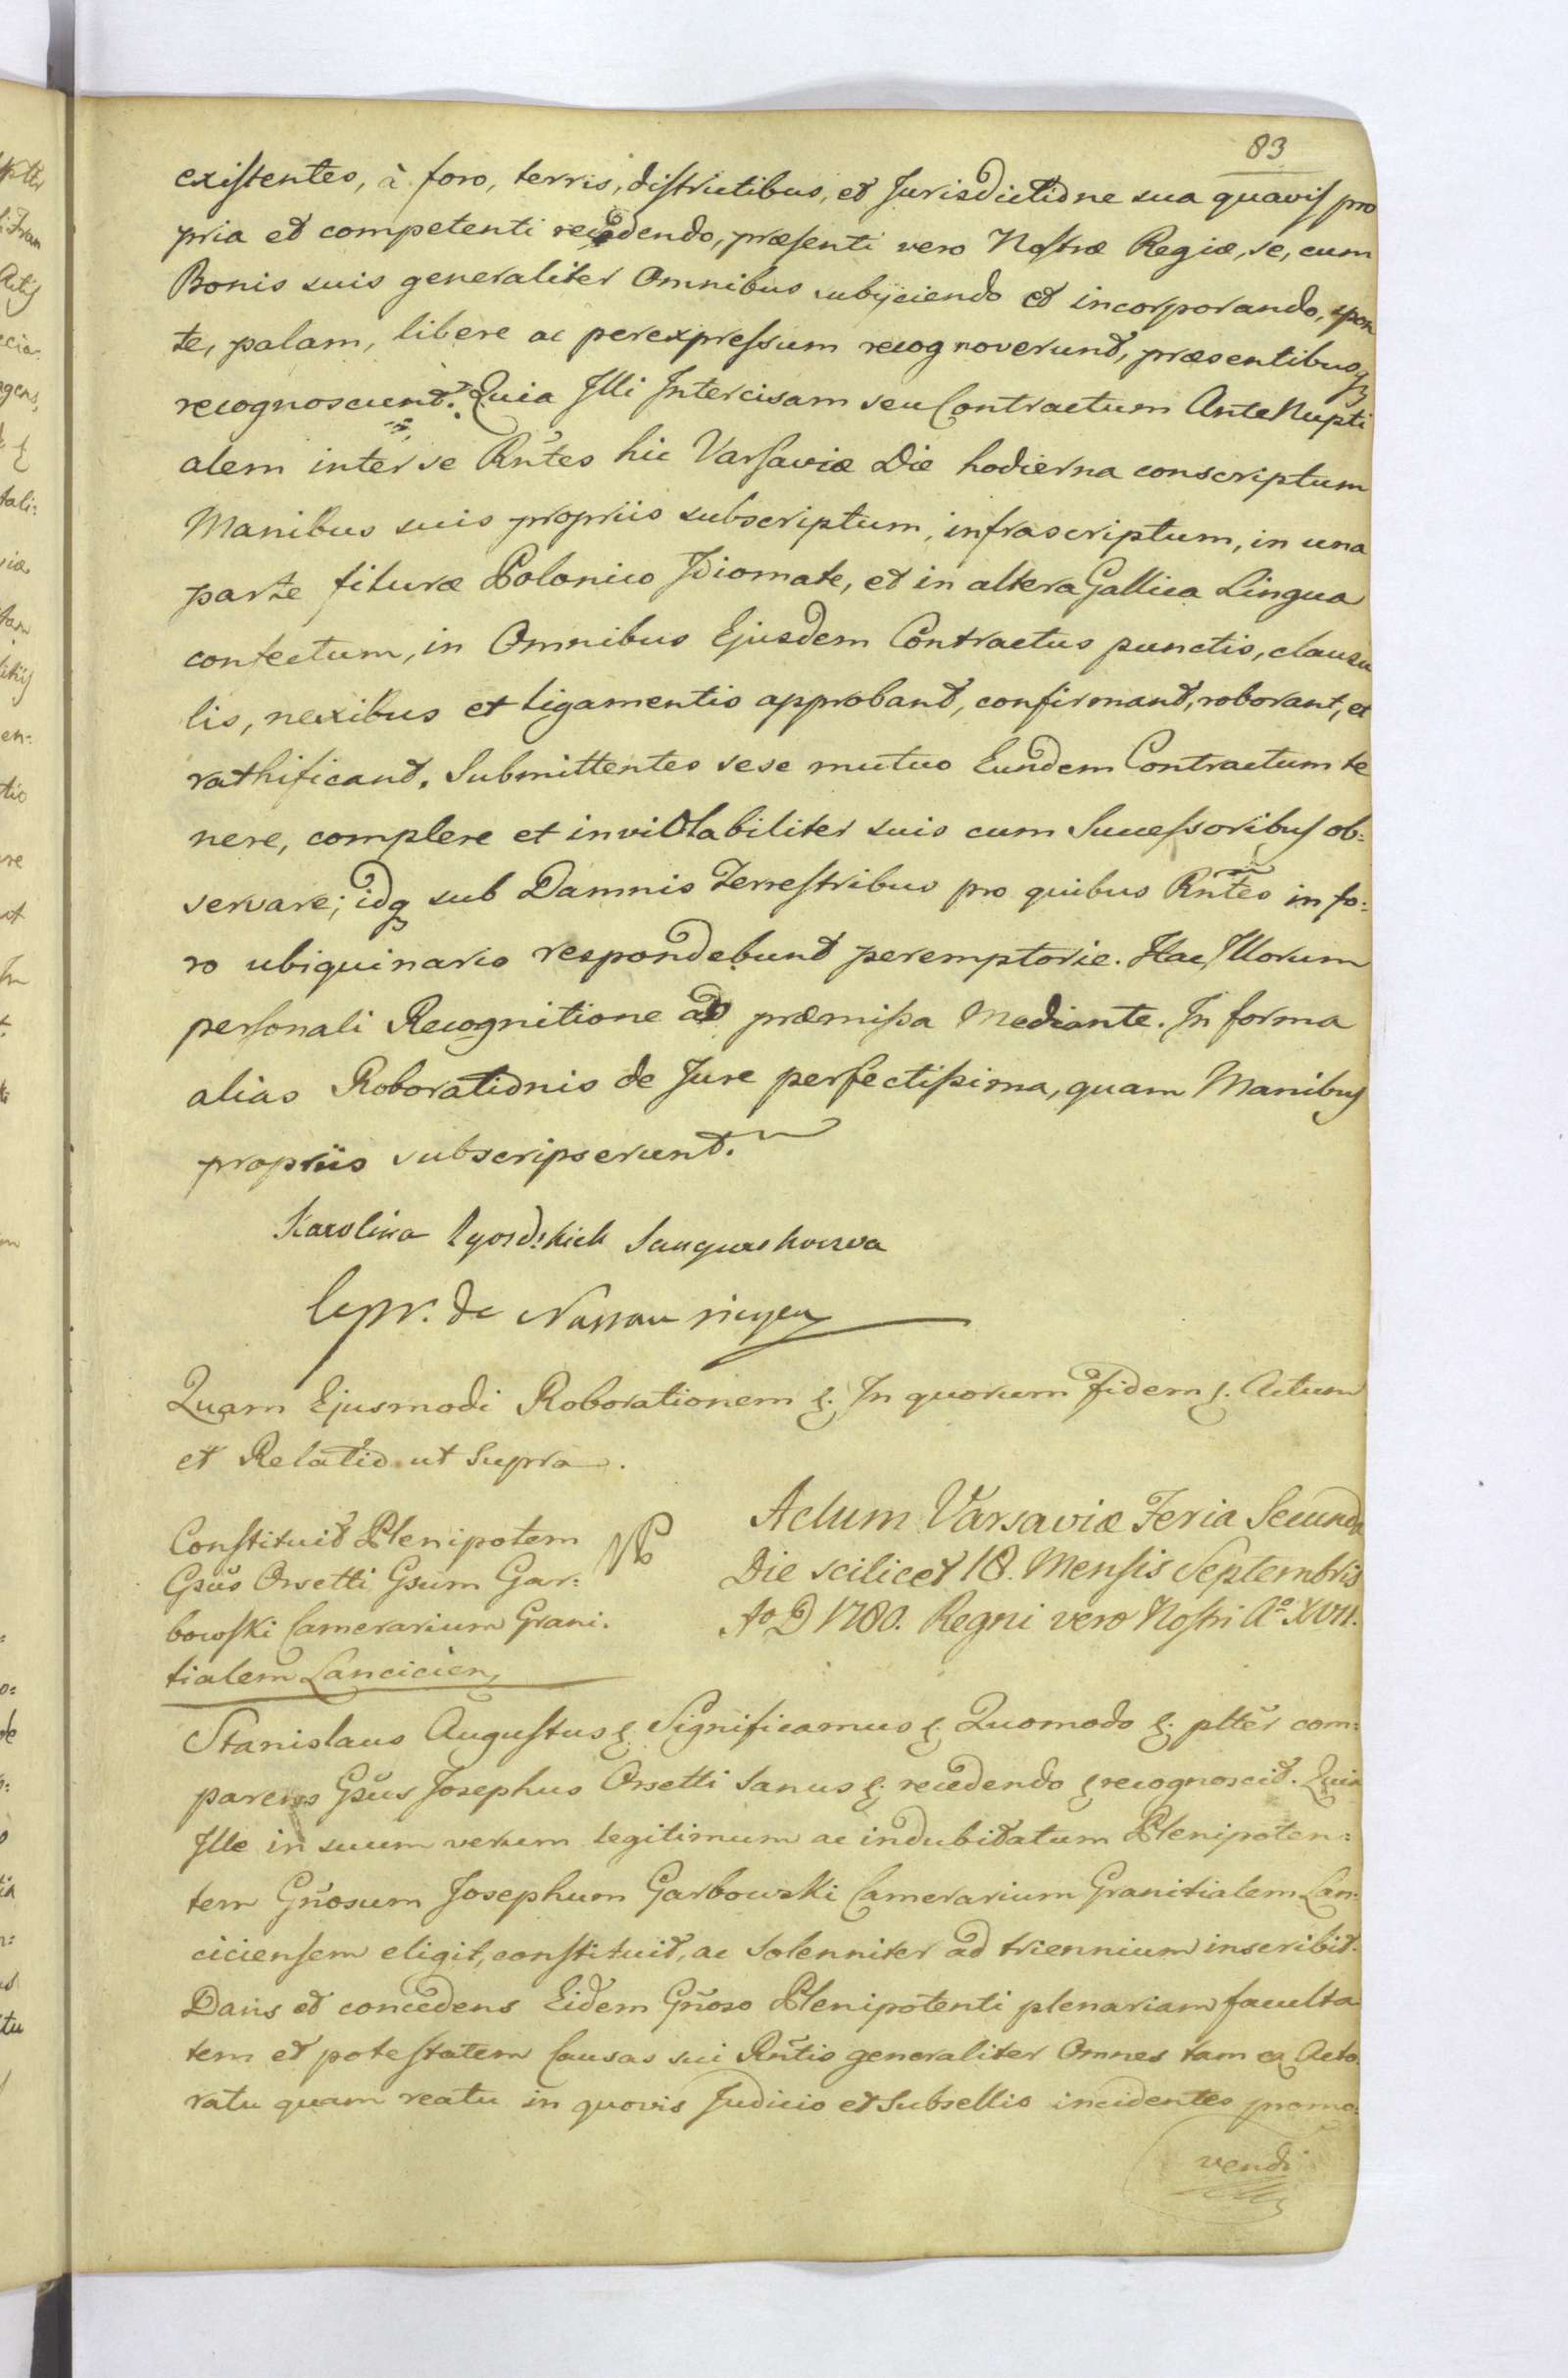 83
existentes, à foro, terris, districtibus, et Jurisdictione sua quavis pro
pria et competenti recedendo, præsenti vero Nostræ Regiæ, se, cum
Bonis suis generaliter Omnibus subijciendo et incorporando, spon
te, palam, libere ac per expressum recognoverunt, præsentibusq
recognoscunt. Quia Illi Intercisam seu Contractum Ante Nupti
alem inter se Rñtes hic Varsaviæ Die hodierna conscriptum
Manibus suis propriis subscriptum, infrascriptum, in una
parte fituræ Polonico Idiomate, et in altera Gallica Lingua
contectum, in Omnibus Ejusdem Contractus punctis, clausu
lis, nexibus et ligamentis approbant, confirmant, roborant, et
rathificant. Submittentes sese mutuo Eundem Contractum te
nere, complere et inviolabiliter suis cum Successoribus ob:
servare; idq sub Damnis Terrestribus pro quibus Rñtes in fo:
ro ubiquinario respondebunt peremptorie. Hac Illorum
personali Recognitione ad præmissa Mediante. In forma
alias Roborationis de Jure perfectissima, quam Manibus
propriis subscripserunt.
Karolina Sanguszkowa
de Nassau siegen
Quam Ejusmodi Roborationem &. In quorum fidem &. Actum
et Relatio ut Supra.
Constituit Plenipotem
Gsus Orsetti Gsum Gar:
bowski Camerarium Grani.
tialem Lancicien,
Actum Varsaviæ Feria Secunda
Die scilicet 18. Mensis Septembris
Ao D 1780. Regni vero Nostri Aº XVII.
Stanislaus Augustus &. Significamus &. Quomodo &. pltěr com:
parens Gsus Josephus Orsetti Sanus &. recedendo & recognoscit. Quia
Ille in suum verum legitimum ac indubitatum Plenipoten:
tem Gñosum Josephum Garbowski Camerarium Granitialem Lan:
ciciensem eligit, constituit, ac Solenniter ad triennium inscribit.
Dans et concedens Eidem Gñoso Plenipotenti plenariam faculta
tem et potestatem Causas sui Rñtis generaliter Omnes tam ex Acto
ratu quam reatu in quovis Judicio et Subsellio incidentes promo:
vendi